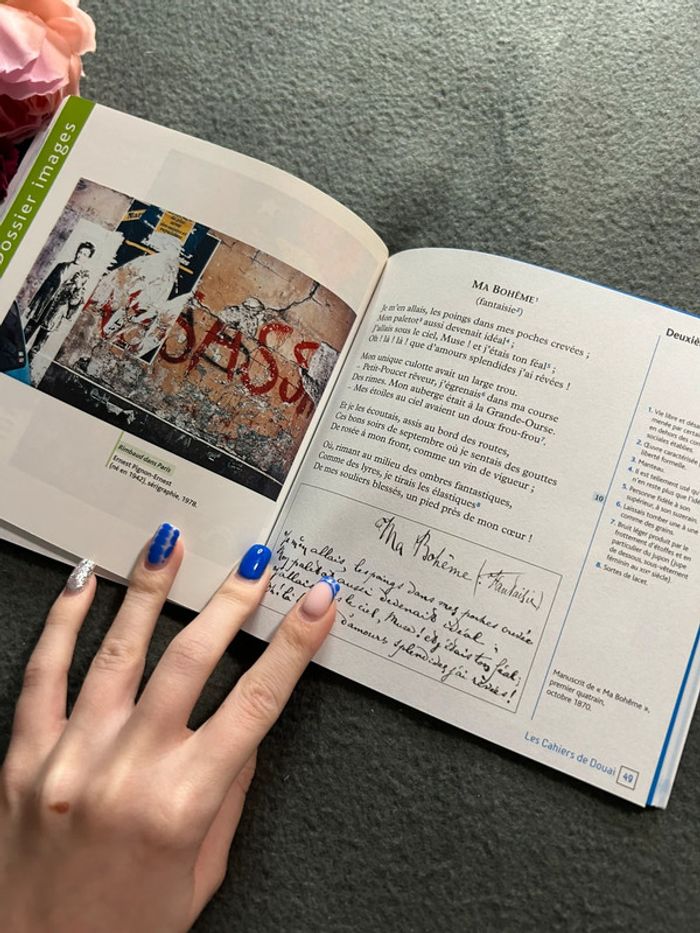 Dossier images
ASSASS
Rimbaud dans Paris
Ernest Pignon-Ernest
(né en 1942), sérigraphie, 1978.
MA BOHÈME¹
(fantaisie²)
Je m'en allais, les poings dans mes poches crevées ;
Mon paletot³ aussi devenait idéal⁴ ;
J'allais sous le ciel, Muse ! et j'étais ton féal⁵ ;
Oh ! là ! là ! que d'amours splendides j'ai rêvées !
Mon unique culotte avait un large trou.
– Petit-Poucet rêveur, j'égrenais⁶ dans ma course
Des rimes. Mon auberge était à la Grande-Ourse.
– Mes étoiles au ciel avaient un doux frou-frou⁷.
Et je les écoutais, assis au bord des routes,
Ces bons soirs de septembre où je sentais des gouttes
De rosée à mon front, comme un vin de vigueur ;
Où, rimant au milieu des ombres fantastiques,
Comme des lyres, je tirais les élastiques⁸
De mes souliers blessés, un pied près de mon cœur !
10
Ma Bohême (Fantaisie)
Je m'en allais, les poings dans mes poches crevées
Mon paletot aussi devenait idéal
J'allais sous le ciel, Muse ! et j'étais ton féal ;
d'amours splendides j'ai rêvées !
Deuxiè
1. Vie libre et
menée par
en dehors des
sociales établies.
2. Œuvre caractérisée
liberté formelle.
3. Manteau.
4. Il est tellement usé
n'en reste plus que
5. Personne fidèle à son
supérieur, à son
6. Laissais tomber une à une
comme des grains.
7. Bruit léger produit par le
frottement d'étoffes et en
particulier du jupon (jupe
de dessous, sous-vêtement
féminin au XIXᵉ siècle).
8. Sortes de lacet.
Manuscrit de « Ma Bohême »,
premier quatrain,
octobre 1870.
Les Cahiers de Douai 49